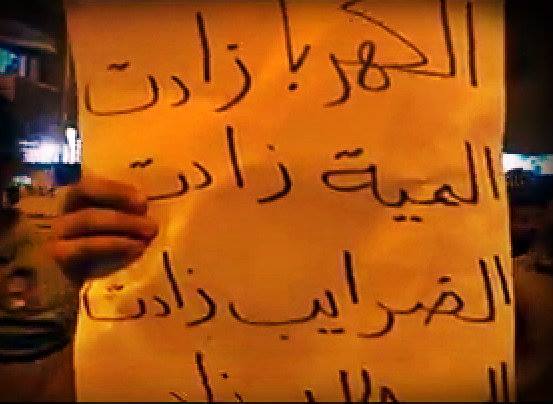 الكهربا زادت
المية زادت
الضرايب زادت